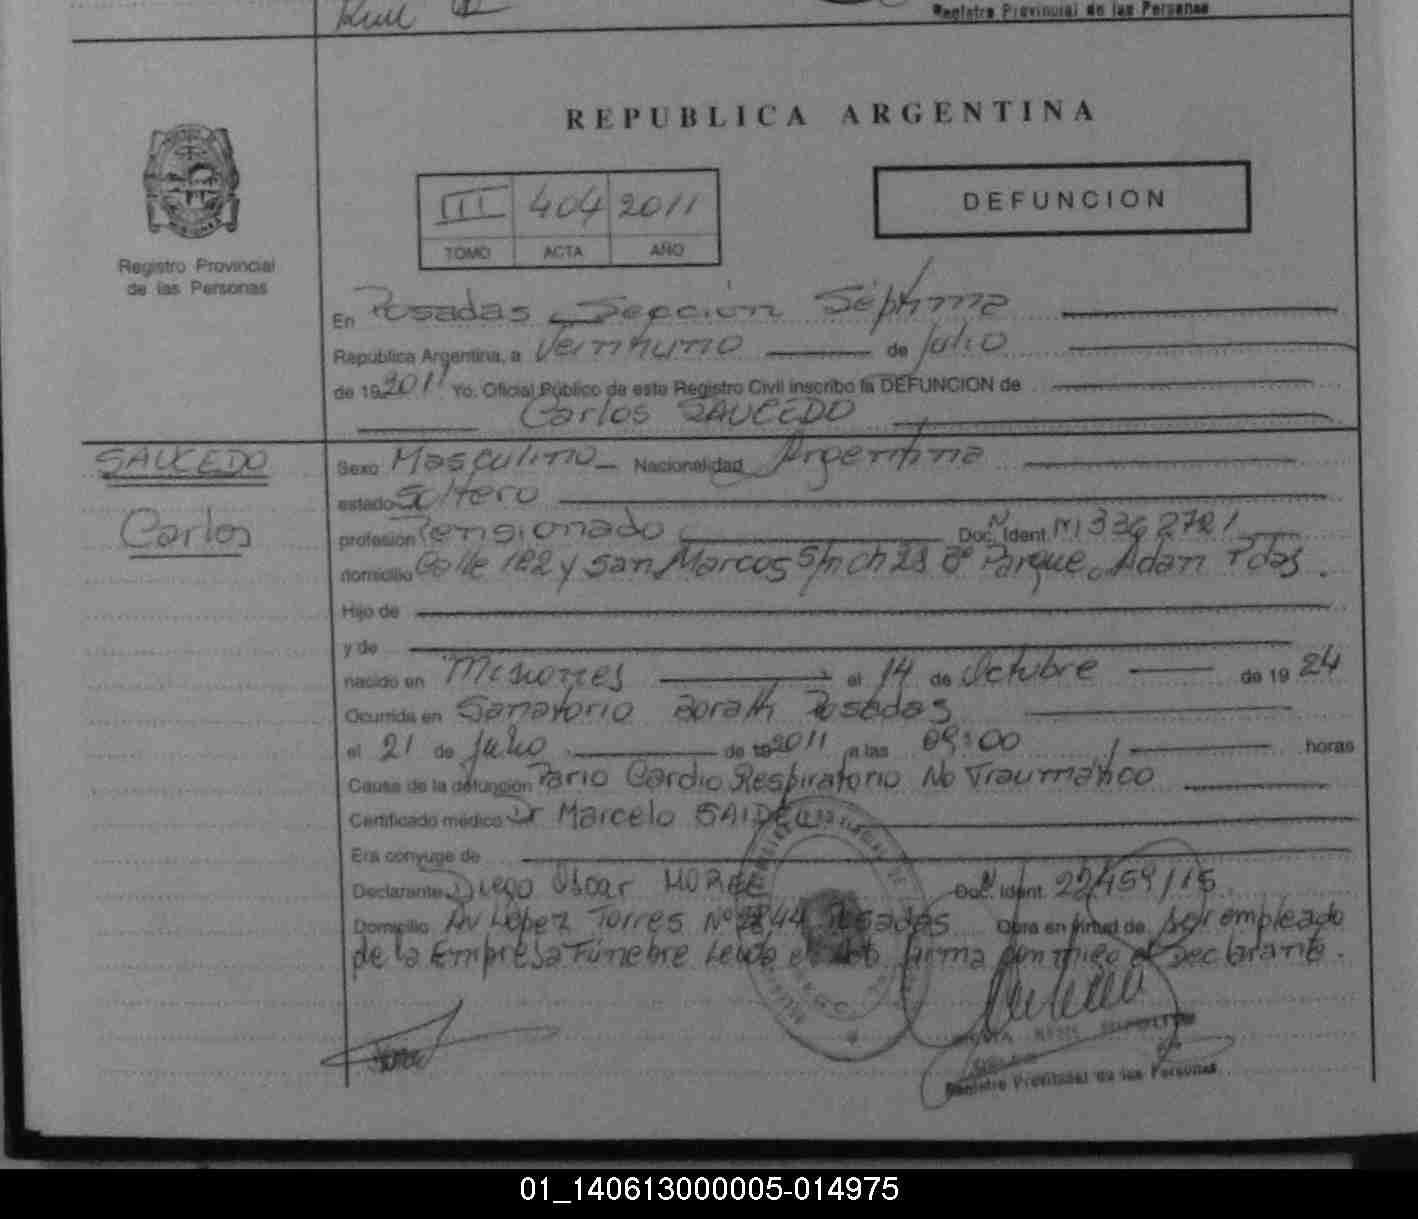 Registro Provincial de las Personas
REPUBLICA ARGENTINA
III 404 2011
TOMO ACTA AÑO
DEFUNCION
Registro Provincial
de las Personas
En Posadas Sección Séptima
República Argentina, a Veintiuno de Julio
de 19 2011 Yo. Oficial Público de este Registro Civil inscribo la DEFUNCION de
Carlos SAUCEDO
SAUCEDO
Carlos
Sexo Masculino Nacionalidad Argentina
estado Soltero
profesión Pensionado Doc. Ident. M
domicilio Calle 122 y San Marcos S/n ch Parque Adam Pdas.
Hijo de
y de
nacido en Misiones el 14 de Octubre de 19 24
Ocurrida en Sanatorio Posadas
el 21 de Julio de 19 2011 a las 09:00 horas
Causa de la defunción Paro Cardio Respiratorio No Traumático
Certificado médico Dr Marcelo
Era conyuge de
Declarante Diego Oscar Doc. Ident.
Domicilio Av López Torres Nº Posadas Obra en virtud de ser empleado
de la Empresa Fúnebre Leida el firma conmigo el Declarante.
Registro Provincial de las Personas
01_140613000005-014975